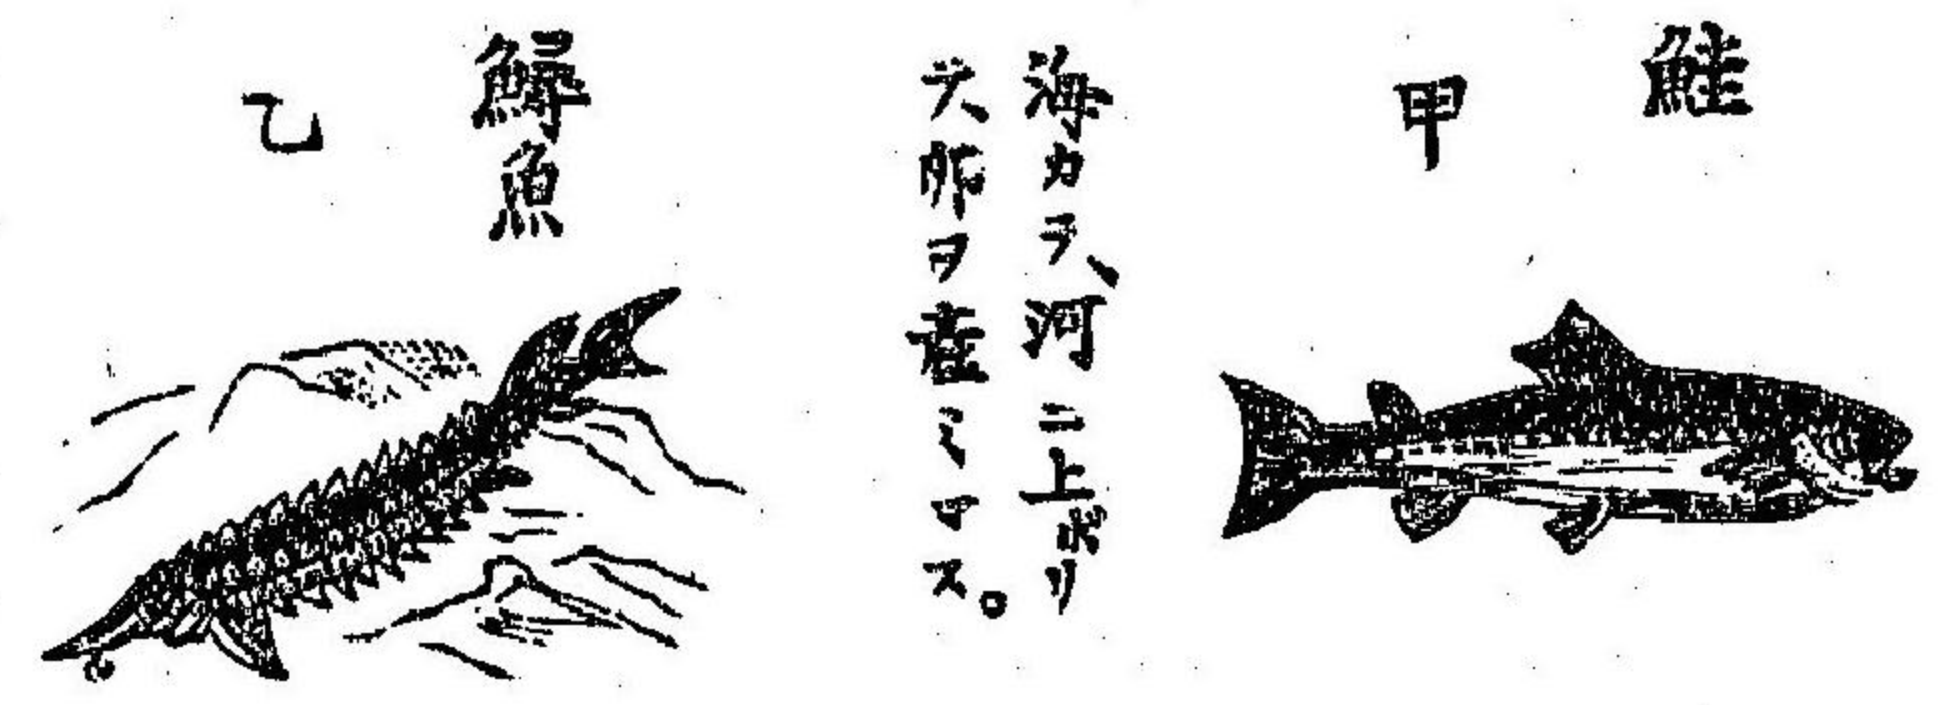 鮭
甲
海カラ、河ニ上ボリ
テ、卵ヲ産ミマス。
鱘魚
乙